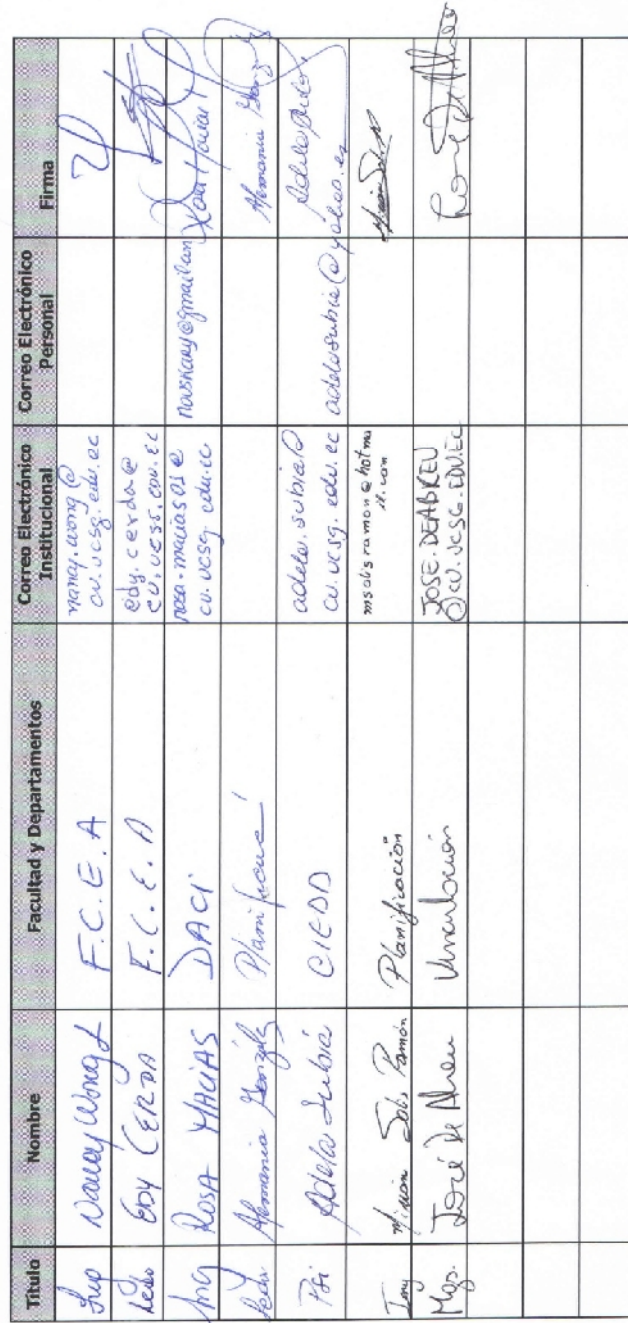 Título Nombre Facultad y Departamentos Correo Electrónico Institucional Correo Electrónico Personal Firma
Nancy Wong L F.C.E.A nancy.wong@
cu.ucsg.edu.ec
Lcdo EDY CERDA F.C.E.A edy.cerda@
cu.ucsg.edu.ec
Ing ROSA MACIAS DACI rosa.macias01@
cu.ucsg.edu.ec
Lcda Alemania González Alemania
Psi Adela Subía CIEDD adela.subia@
cu.ucsg.edu.ec adelasubia@yahoo.es
Ing Miriam Solís Ramón Planificación msolisramon@hotma
il.com
Mgs. José De Abreu Vinculación JOSE.DEABREU
@cu.ucsg.EDU.EC